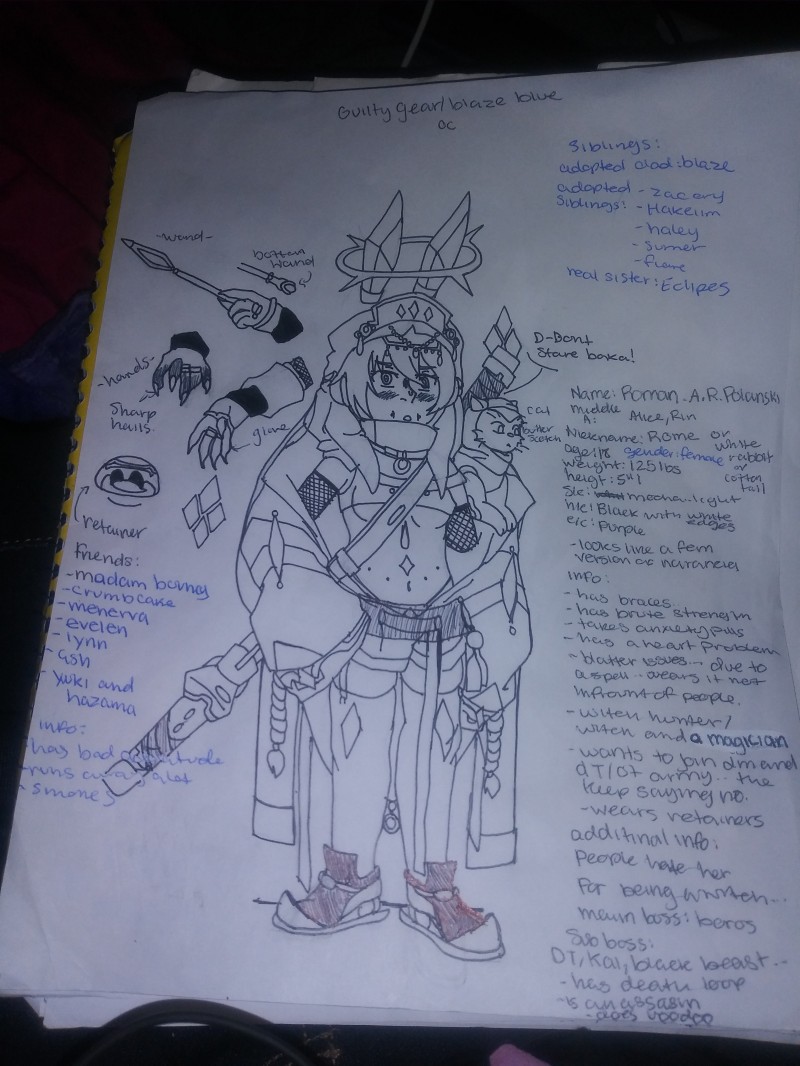 Guilty gear/blaze blue
oc
Siblings:
adopted dad: blaze
adopted
siblings: - zacary
- Hakeiim
- haley
- sumer
- flame
real sister: Eclipes
-wand-
bottom
wand
-hands-
Sharp
nails.
glove
retainer
D-Dont
Stare baka!
cat
butter
scotch
Friends:
- madam barney
- crumbcake
- menerva
- evelen
- lynn
- ash
- yuki and
hazama
info:
- has bad
- runs away alot
- smokes
Name: Roman. A.R. Polanski
middle
A: Alice, Rin
Nickname: Rome or white
rabbit
or
cotton
tail
age: 18 gender: female
weight: 125 lbs
heigt: 5"1
mecha.light
h/c: Black with white
edges
e/c: Purple
- looks like a fem
version of narancia
info:
- has braces.
- has brute strength
- takes anxiety pills
- has a heart problem
- blatter issues... due to
a spell.. wears it not
infrount of people.
- witch hunter/
witch and a magician
- wants to join dm and
dT/OT army.. the
keep saying no.
- wears retainers
additinal info:
People hate her
for being a witch..
main boss: boros
Sub boss:
DT, Kai, black beast..
- has death loop
- is an assasin
- does voodoo